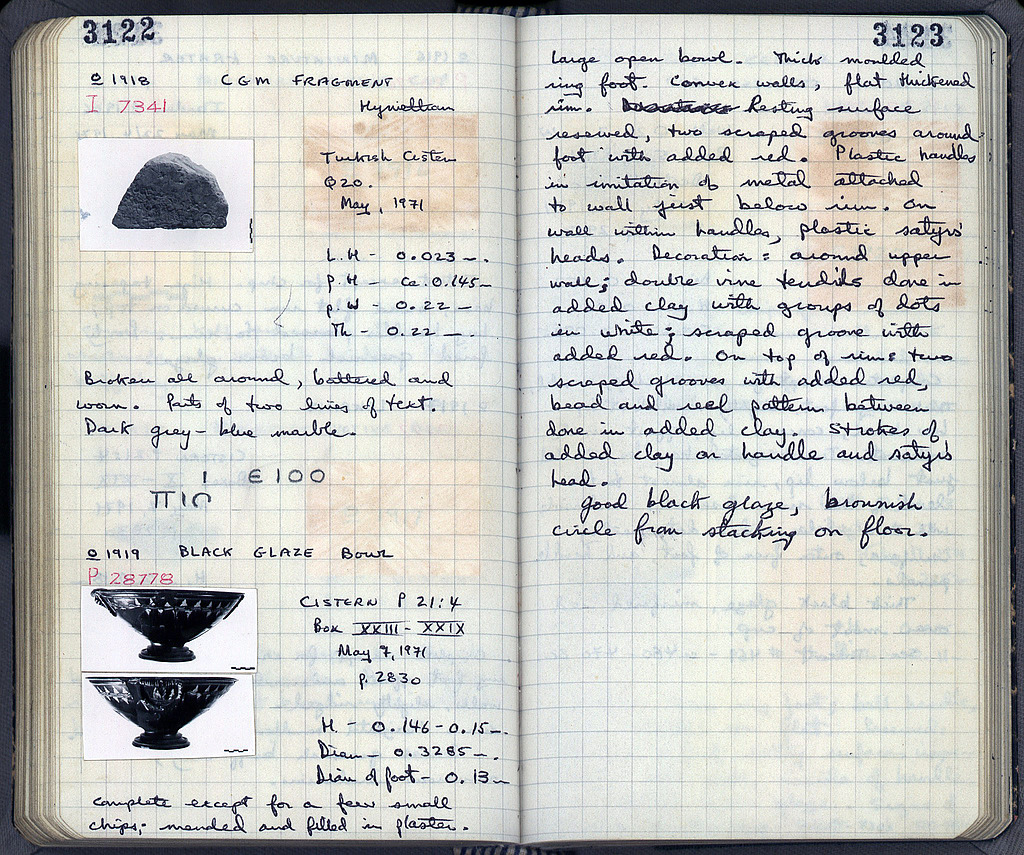 3122
o 1918 CGM FRAGMENT
I 7341 Hymettian
Turkish Cistern
Q20.
May, 1971
L.H - 0.023 -.
p.H - ca. 0.145-
p.W - 0.22 -
Th - 0.22 -.
Broken all around, battered and
worn. Parts of two lines of text.
Dark grey-blue marble.
Ι ΕΙΟΟ
ΠΙΟ
o 1919 BLACK GLAZE BOWL
P 28778
CISTERN P 21:4
Box XXIII - XXIX
May 7, 1971
p. 2830
H. - 0.146-0.15-.
Diam - 0.3285-.
Diam of foot - 0.13-
Complete except for a few small
chips; mended and filled in plaster.
3123
Large open bowl. Thick moulded
ring foot. Convex walls, flat thickened
rim. Resting surface
reserved, two scraped grooves around
foot with added red. Plastic handles
in imitation of metal attached
to wall just below rim. On
wall within handles, plastic satyrs'
heads. Decoration: around upper
wall; double vine tendrils done in
added clay with groups of dots
in white; scraped groove with
added red. On top of rim: two
scraped grooves with added red,
bead and reel pattern between
done in added clay. Strokes of
added clay on handle and satyrs
head.
Good black glaze, brownish
circle from stacking on floor.